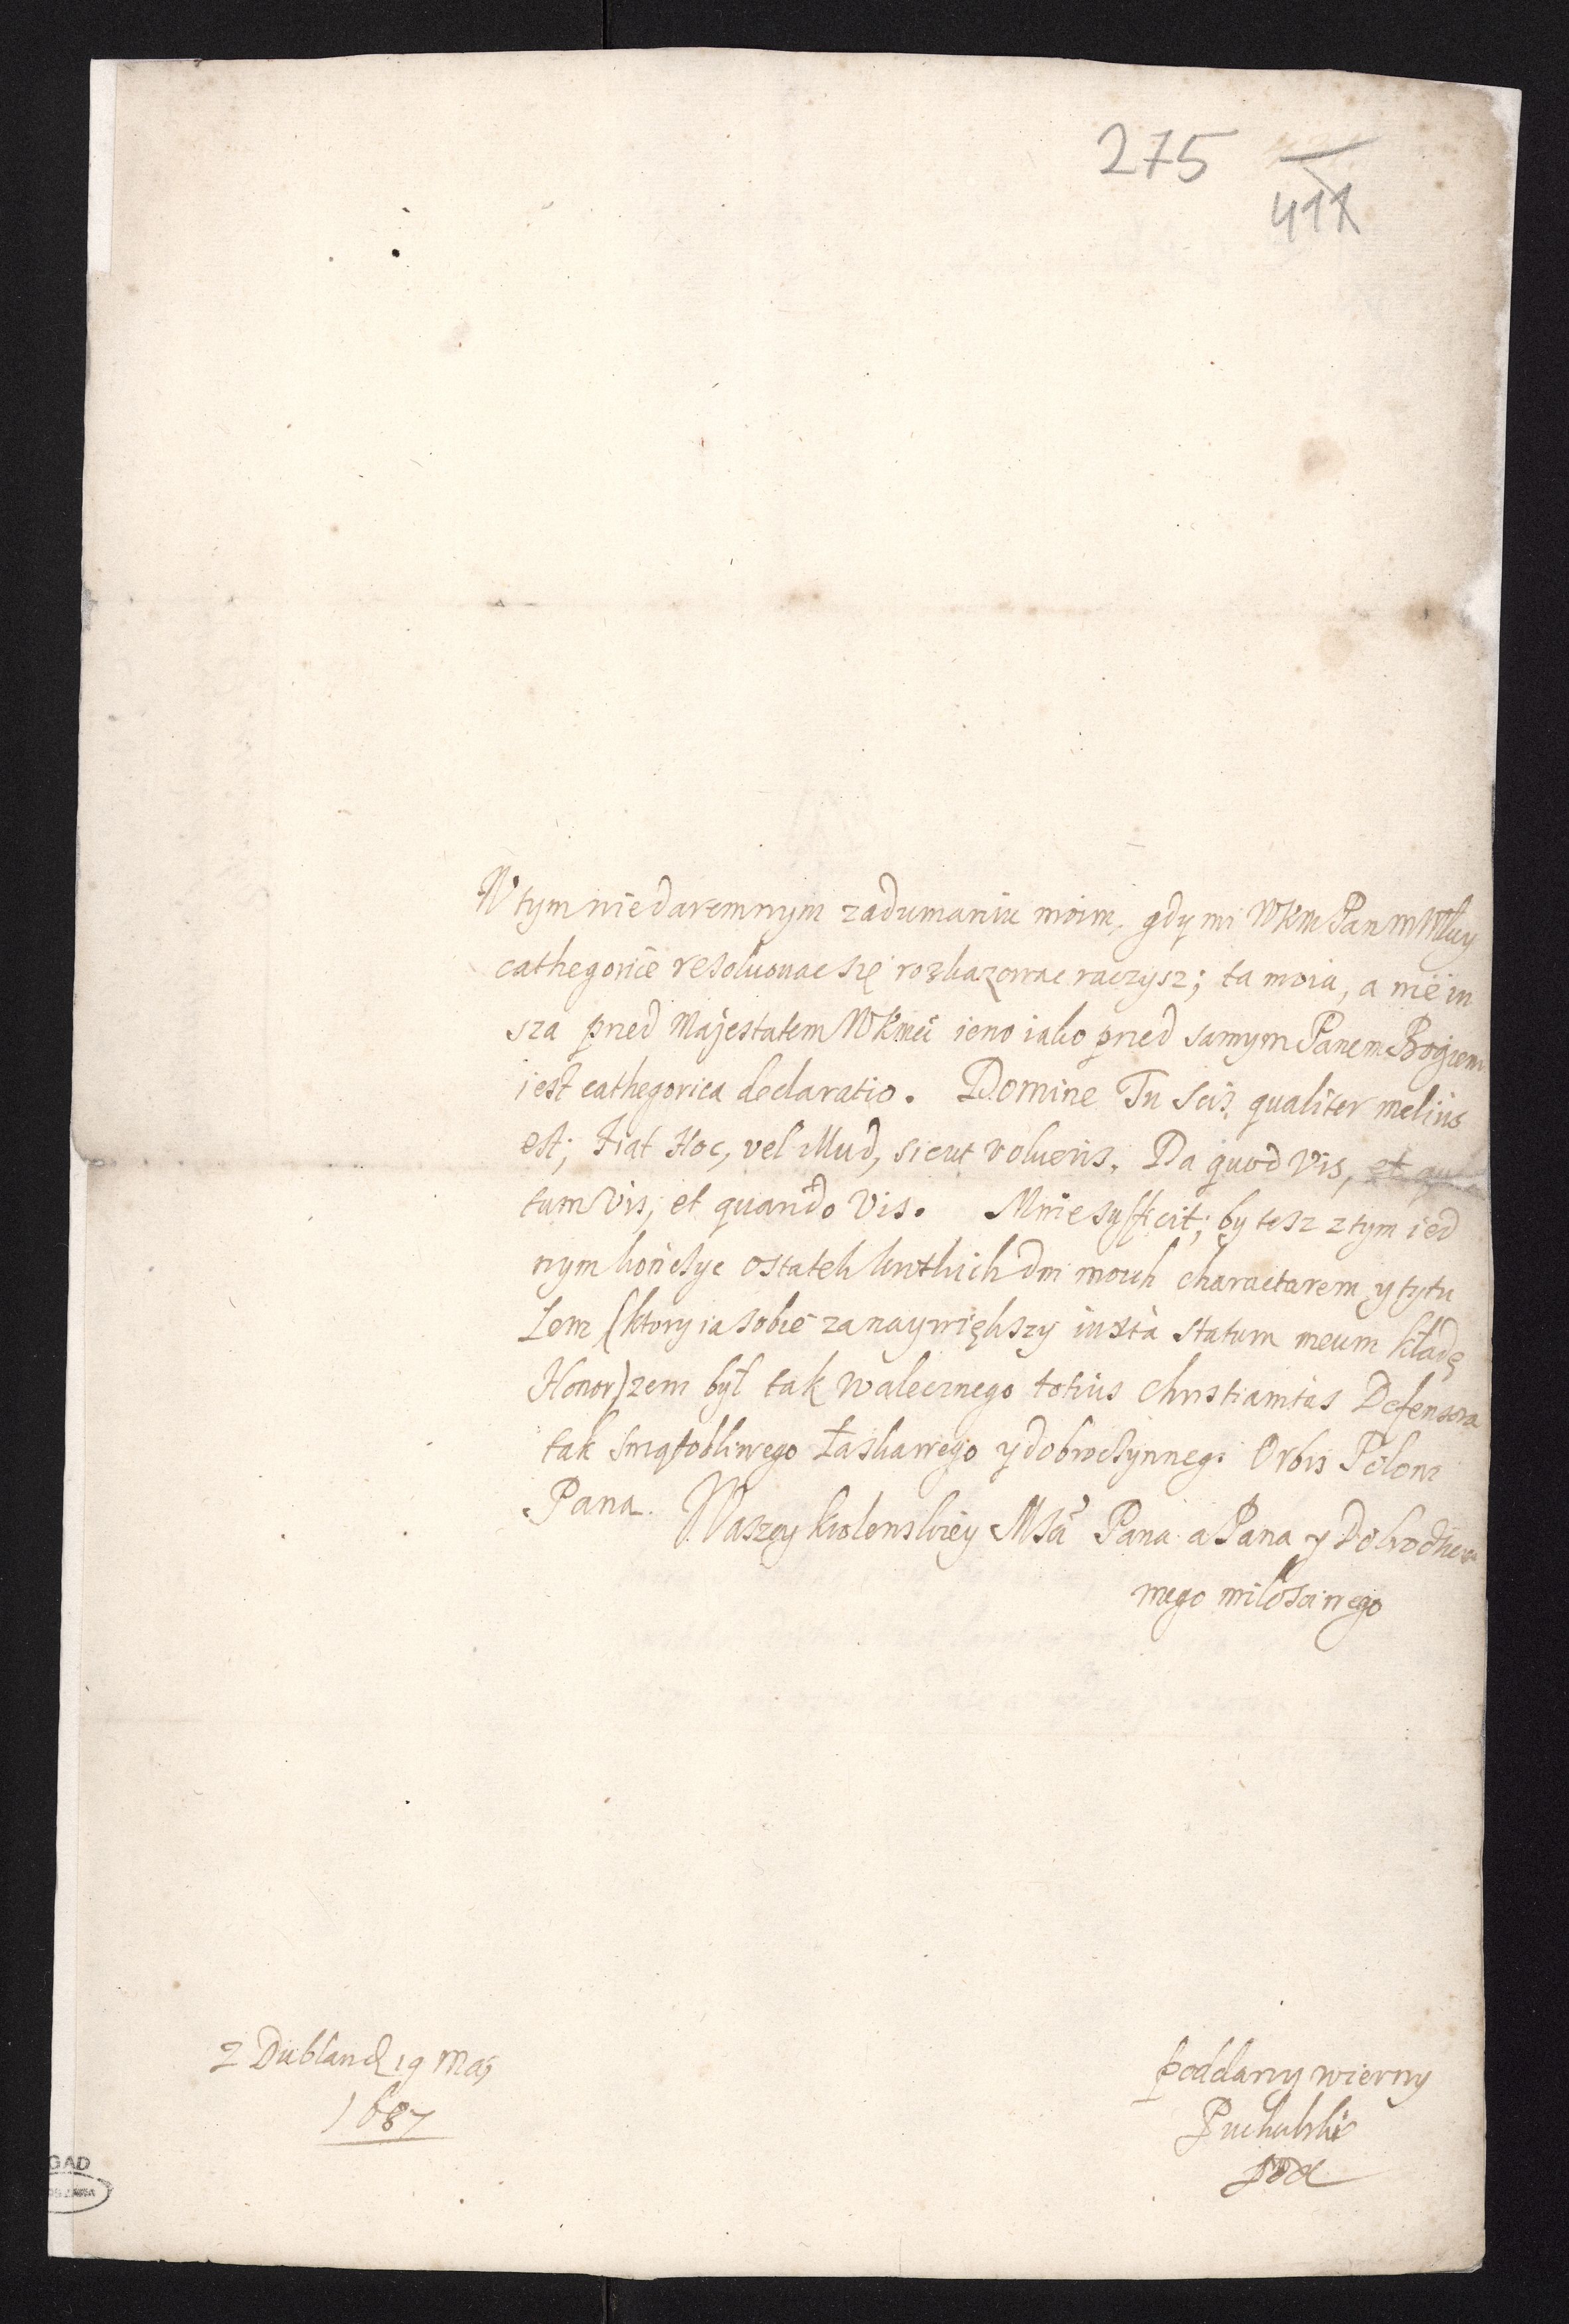 275
411
W tym niedaremnym zadumaniu moim, gdy mi WKM Pan m Młwy
cathegorice resolvowac się roskazowac raczysz; ta moia, a nie in
sza pred Majestatem WKMci ieno iako pred samym Panem Bogiem
iest cathegorica declaratio. Domine Tu scis qualiter melius
est; Fiat Hoc, vel illud, sicut volueris. Da quod Vis, et
tum Vis, et quando Vis. Mnie sufficit; by tesz z tym ied
nym kończyc ostatek krotkich dni moich characterem y tytu
łem (ktory ia sobie za naywiększy iuxta statum meum kładę
Honor) zem był tak walecznego totius christianitas Defensora
tak swiątobliwego łaskawego y dobroczynnego Orbis Poloni
Pana. Waszey krolenskiey Msci Pana a Pana y Dobrodzieia
mego milosciwego
z Dublan d 19 Maj
1687
poddany wierny
GAD